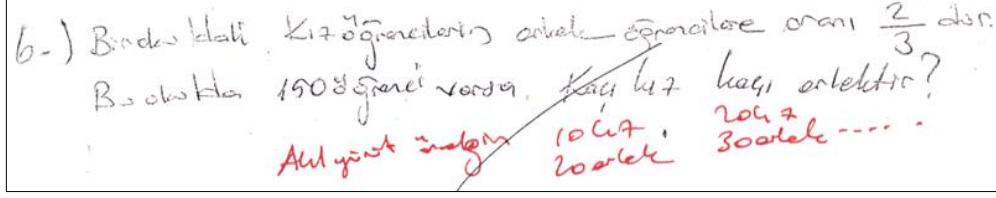 6-) Bir okuldaki Kız öğrencilerin erkek öğrencilere oranı 2/3 dür.
Bu okulda 150 öğrenci varsa, Kaçı kız kaçı erkektir?
Akıl yürüt örneğin 10 kız, 20 kız
20 erkek 30 erkek .....